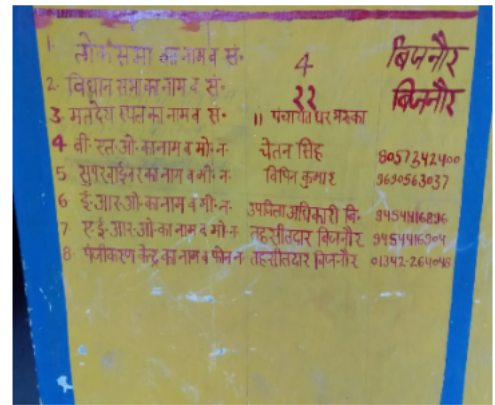 1. लोकसभा का नाम व सं. 4 बिजनौर
2. विधान सभा का नाम व सं. २२ बिजनौर
3. मतदेय स्थल का नाम व सं. 11 पंचायत घर मस्का
4 बी.एल.ओ. का नाम व मो. न. चेतन सिंह 8057342400
5 सुपरवाईजर का नाम व मो. न. विपिन कुमार 9690563037
6 ई.आर.ओ. का नाम व मो. न. उपजिला अधिकारी बि. 9454416896
7 ए.ई.आर.ओ. का नाम व मो. न. तहसीलदार बिजनौर 9454416904
8 पंजीकरण केन्द्र का नाम व फोन न तहसीलदार बिजनौर 01342-264048